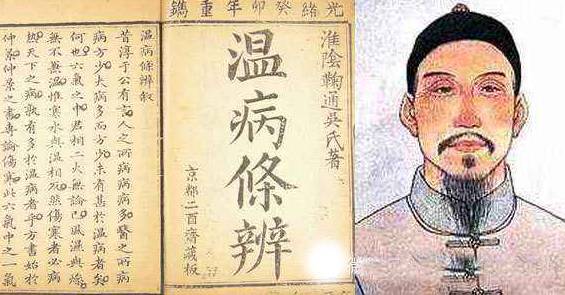 光緒癸卯年重鐫
淮陰鞠通吳氏著
温病條辨
京都二酉齋藏板
温病條辨叙
昔淳于公有言人之所病病病多醫之所病
病方少夫病多而方少未有甚於温病者矣
何也六氣之中君相二火無論已風濕與燥
無不兼温惟寒水與温相反然傷寒者必病
熱天下之病孰有多於温病者乎方書始於
仲景仲景之書專論傷寒此六氣中之一氣